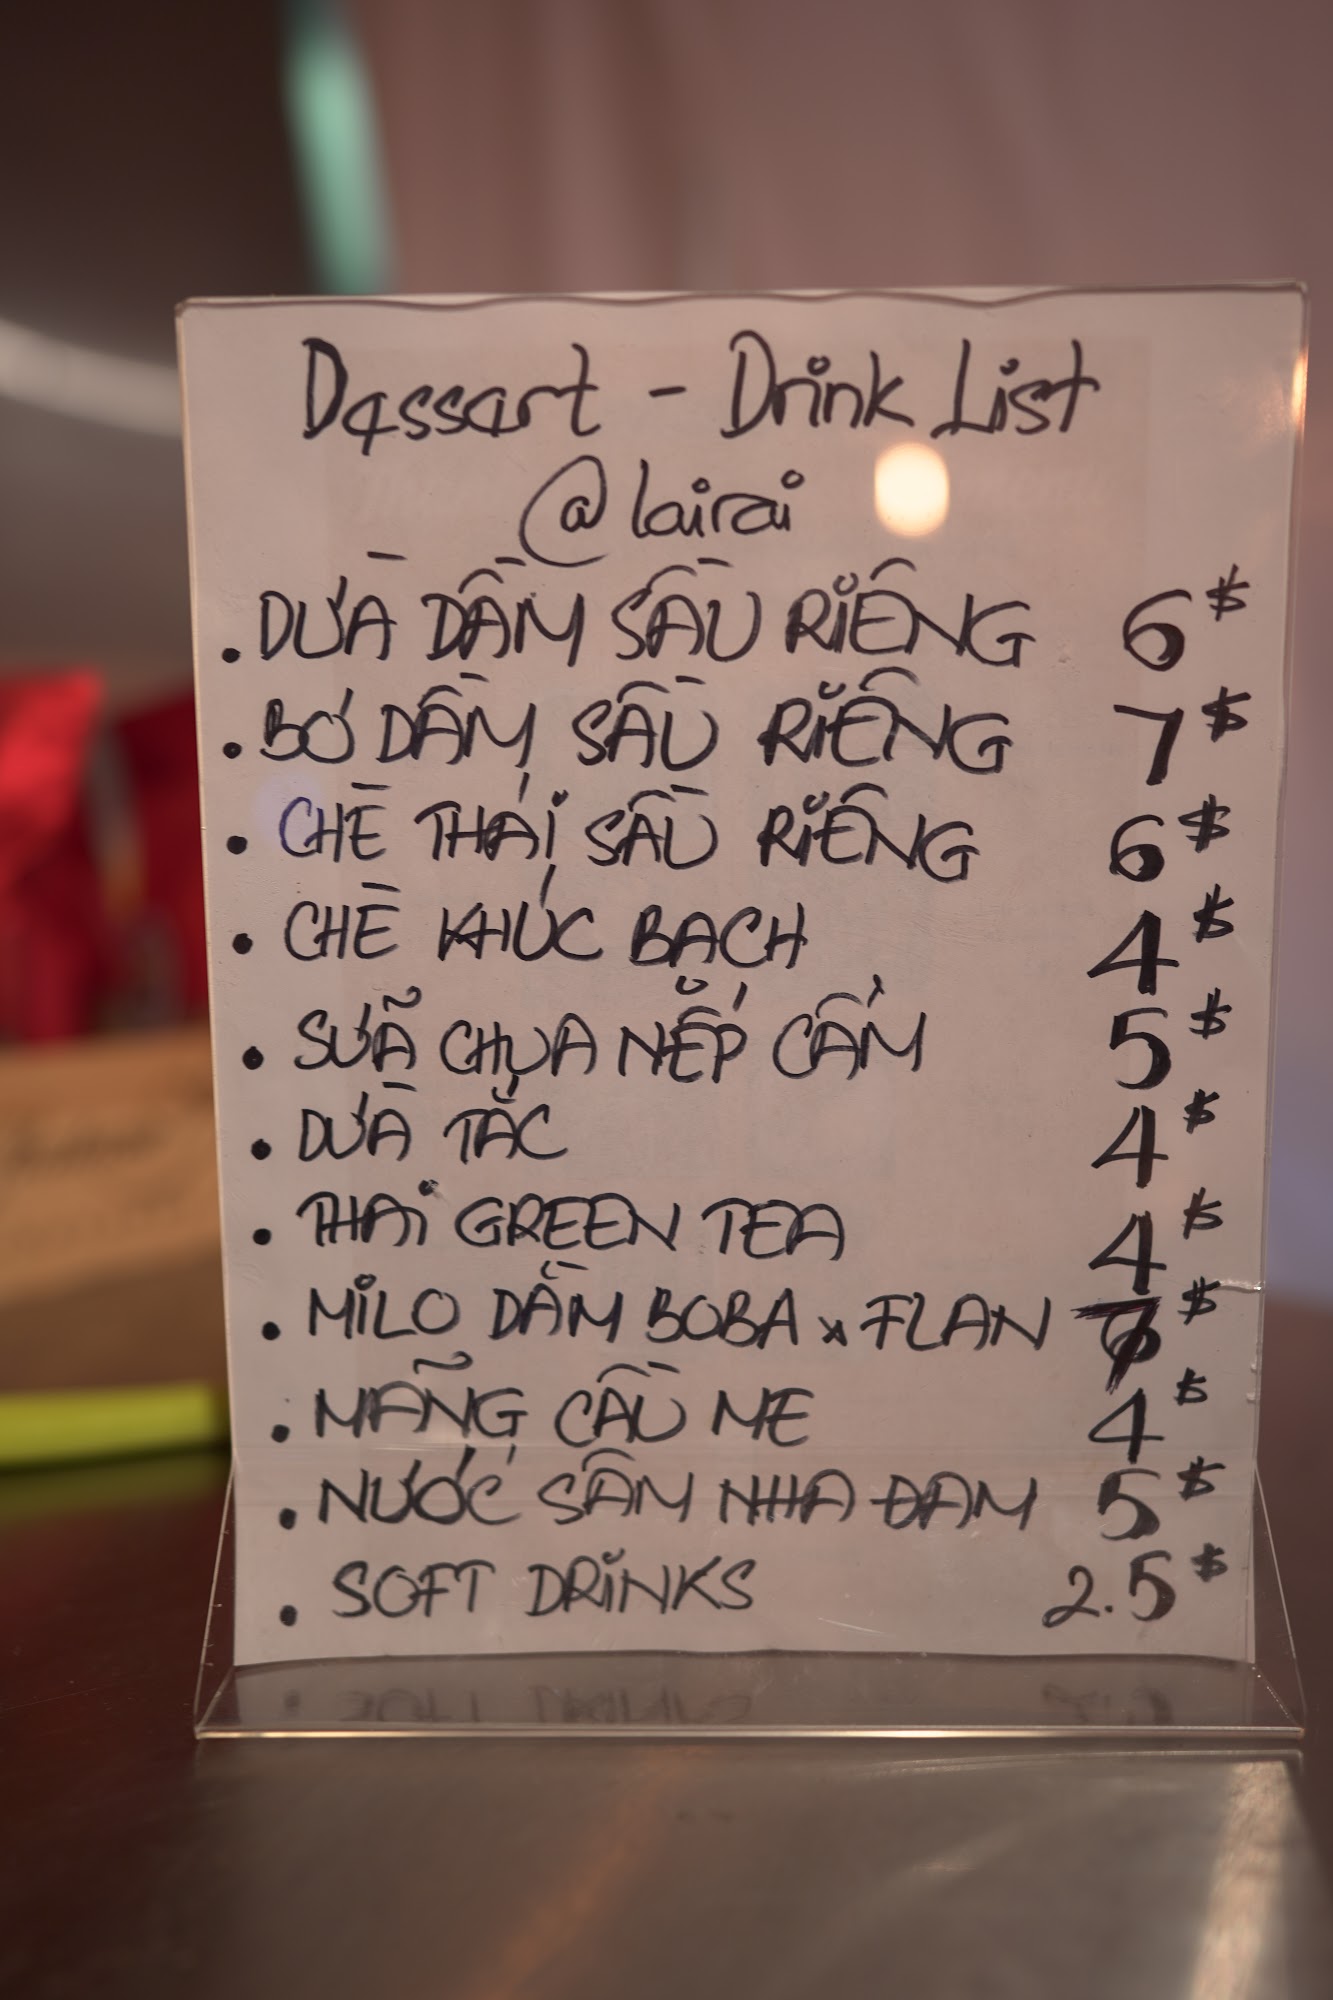 Dassart - Drink List
@lairai
. DỪA DẦM SẦU RIÊNG 6$
. BƠ DẦM SẦU RIÊNG 7$
. CHÈ THÁI SẦU RIÊNG 6$
. CHÈ KHÚC BẠCH 4$
. SỮA CHUA NẾP CẨM 5$
. DỪA TẮC 4$
. THAI GREEN TEA 4$
. MILO DẦM BOBA x FLAN 7$
. MÃNG CẦU ME 4$
. NƯỚC SÂM NHA ĐAM 5$
. SOFT DRINKS 2.5$